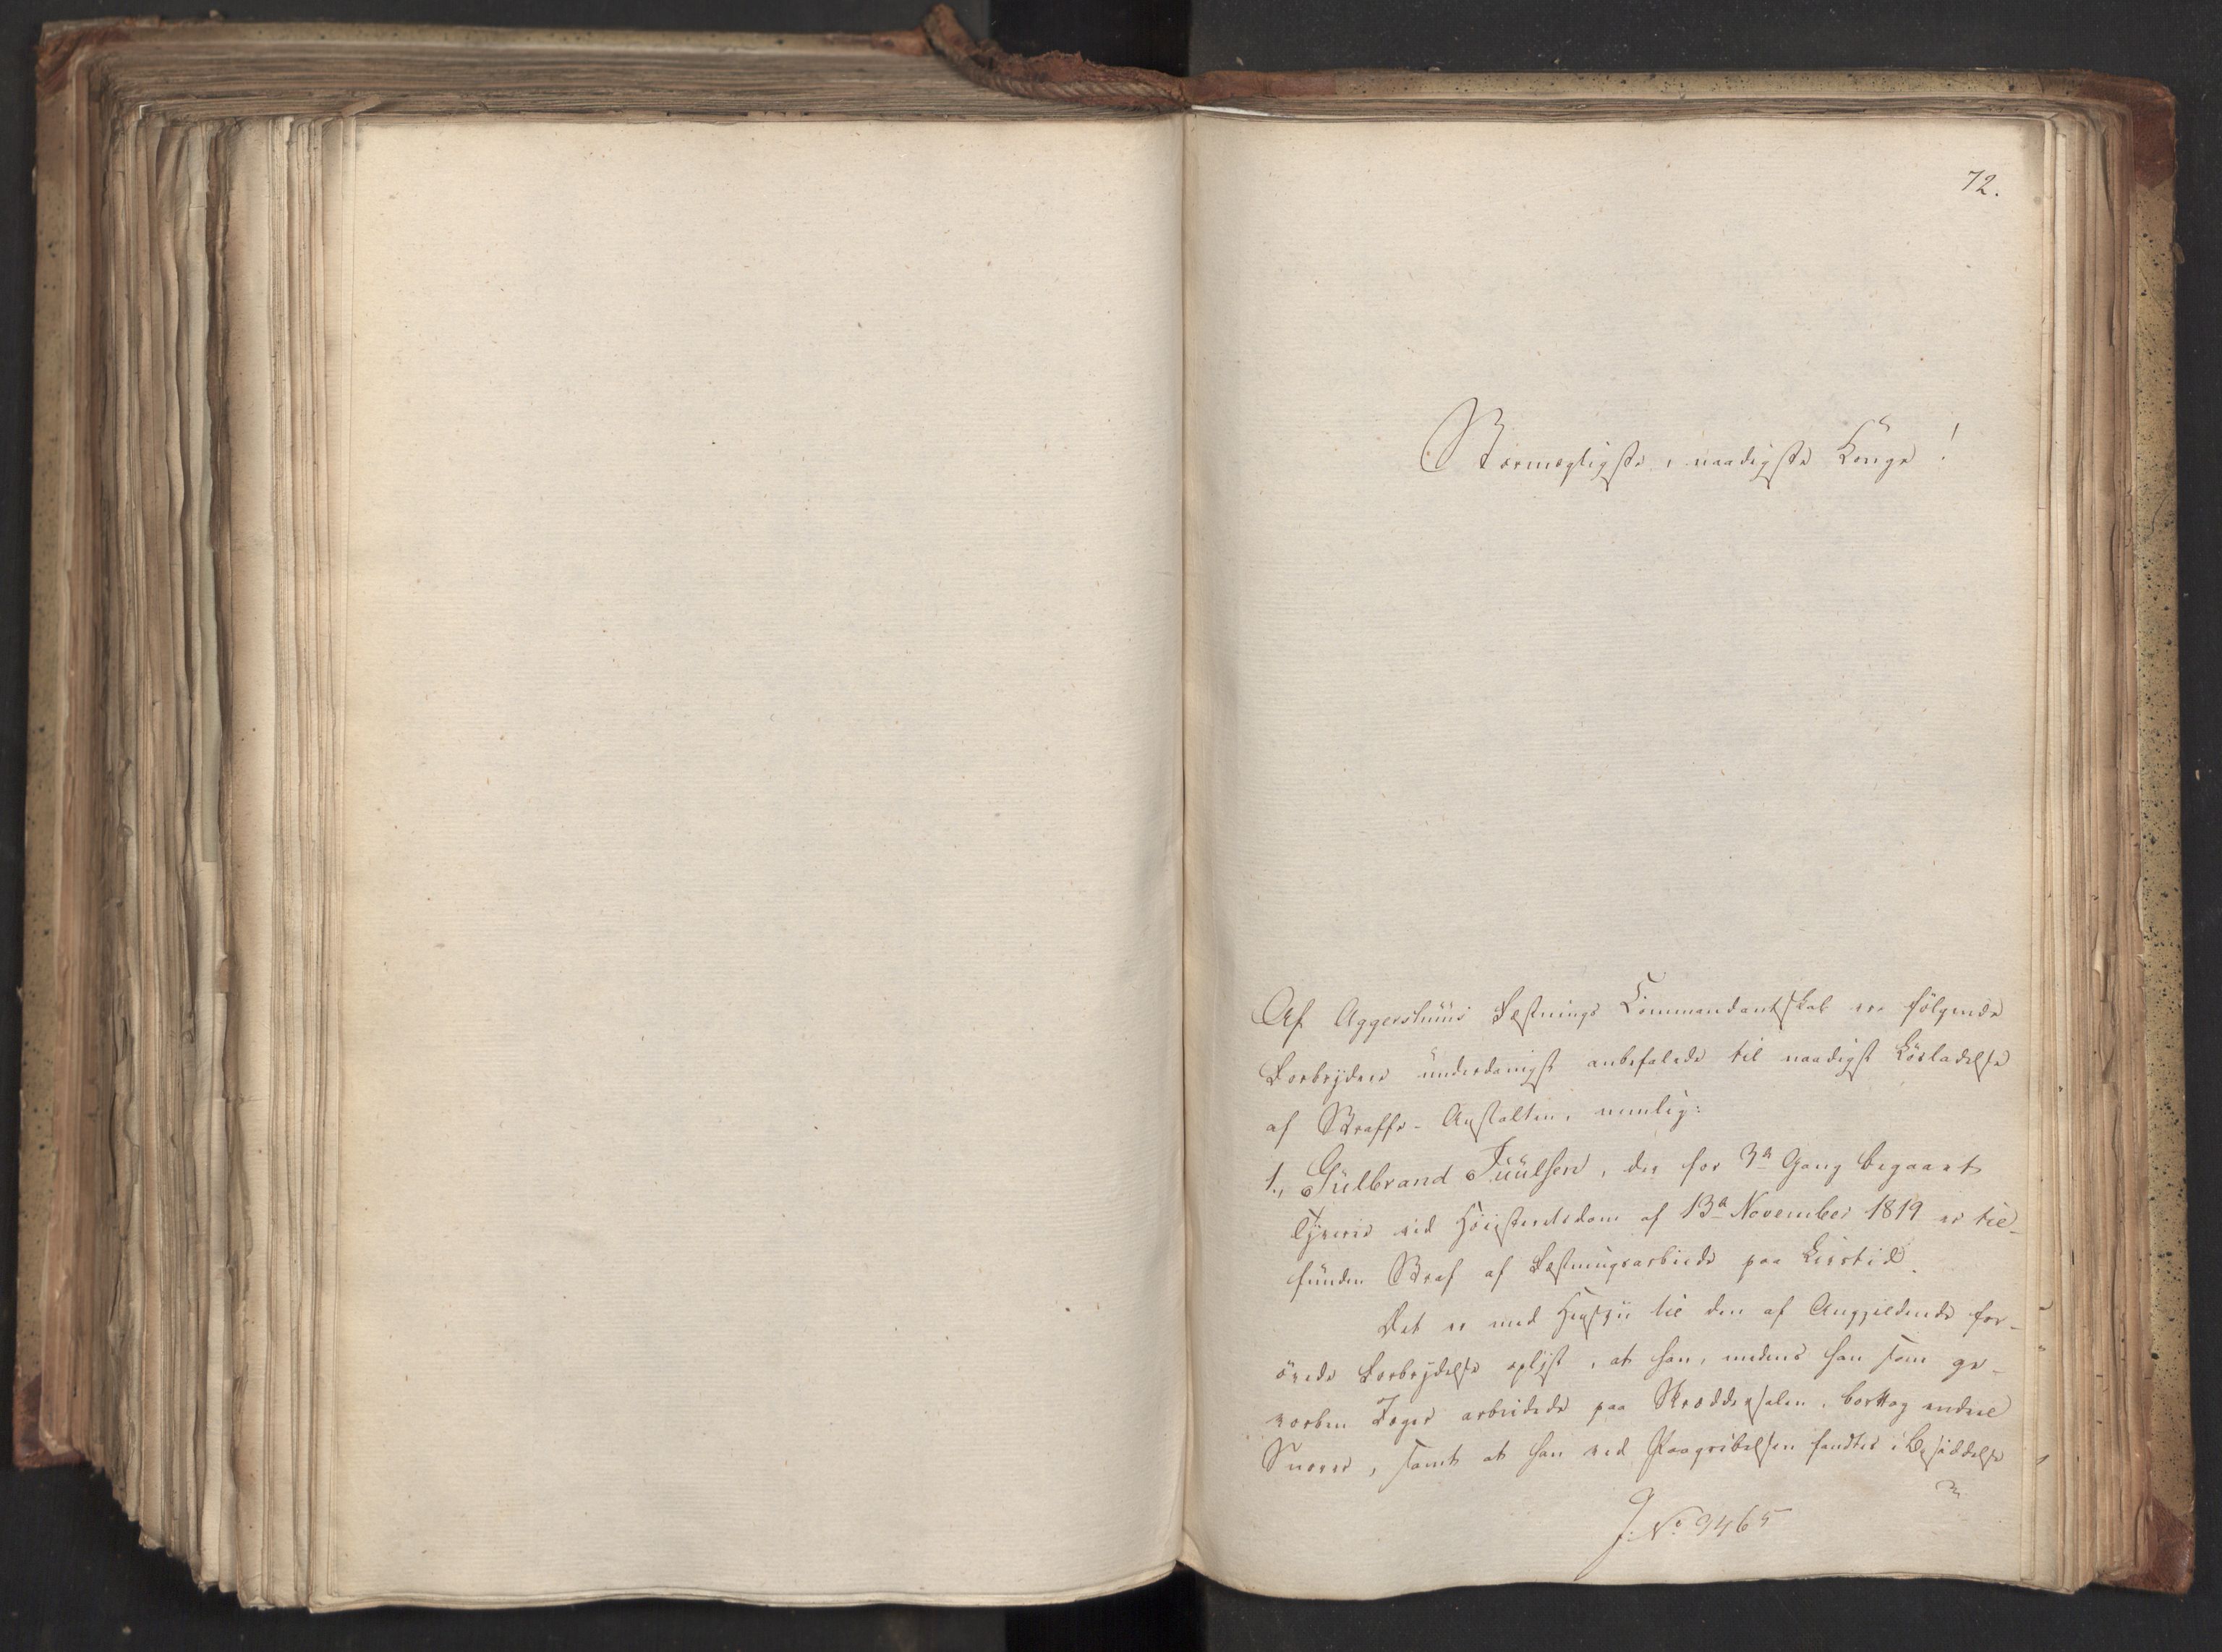 72.
Stormægtigste, naadigste Konge!
Af Aggershuus Fæstnings Commandantskab ere følgende
Forbrydere underdanigst anbefalede til naadigst Løsladelse
af Straffe-Anstalten, nemlig:
1., Gulbrand Juulsen, der for 3die Gang begaaet
Tyverie ved Høiesteretsdom af 13de November 1819 er til-
funden Straf af Fæstningsarbeide paa Livstid.
Det er med Hensyn til den af Angjeldende for-
øvede Forbrydelse oplyst, at han, medens han som ge-
vorben Jæger arbeidede paa Skræddersalen, borttog endeel
Snorer, samt at han ved Paagribelsen fandtes i Besiddelse
J. No. 9465